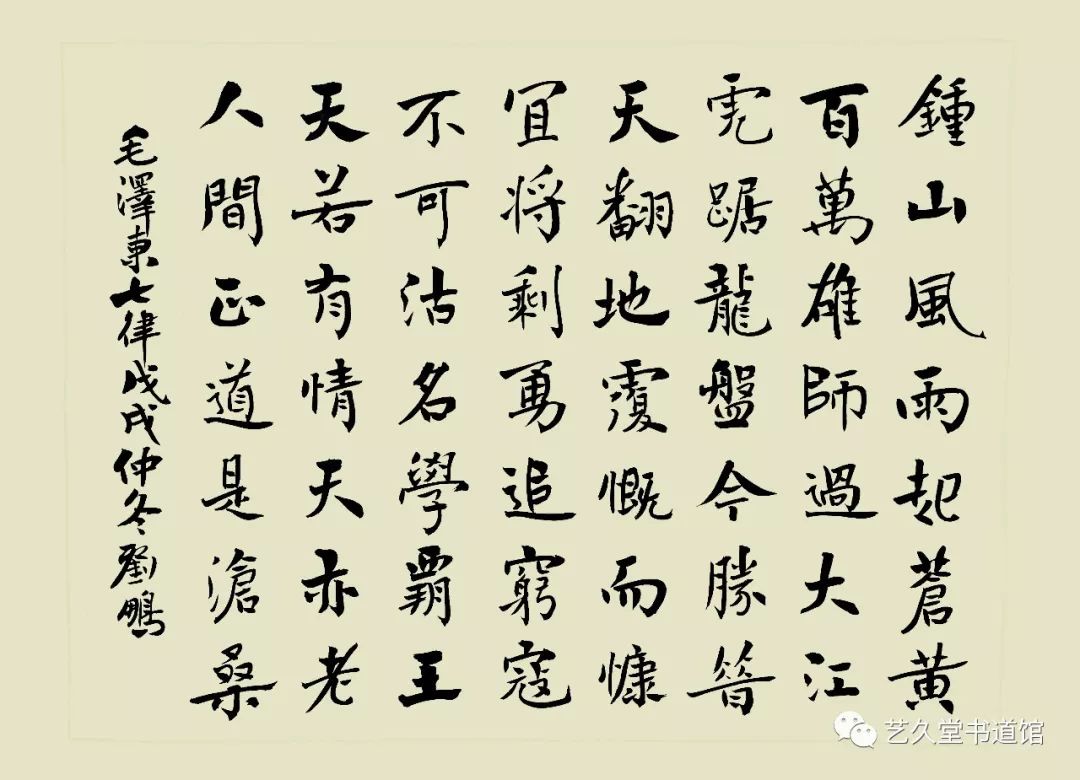 鍾山風雨起蒼黄
百萬雄師過大江
虎踞龍盤今勝昝
天翻地覆慨而慷
宜将剩勇追窮寇
不可沽名學霸王
天若有情天亦老
人間正道是滄桑
毛澤東七律戊戌仲冬劉鵬
艺久堂书道馆